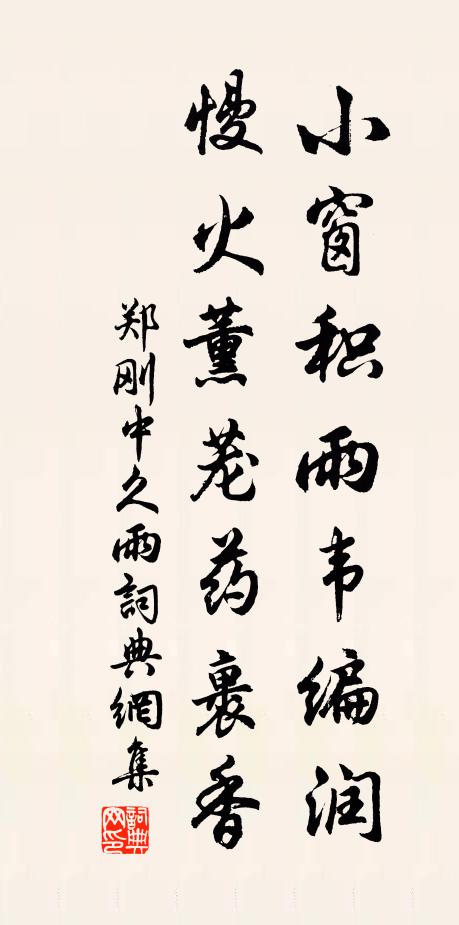 小窗积雨韦编润
慢火薰茏药裹香
郑刚中久雨詞典網集
詞典网印